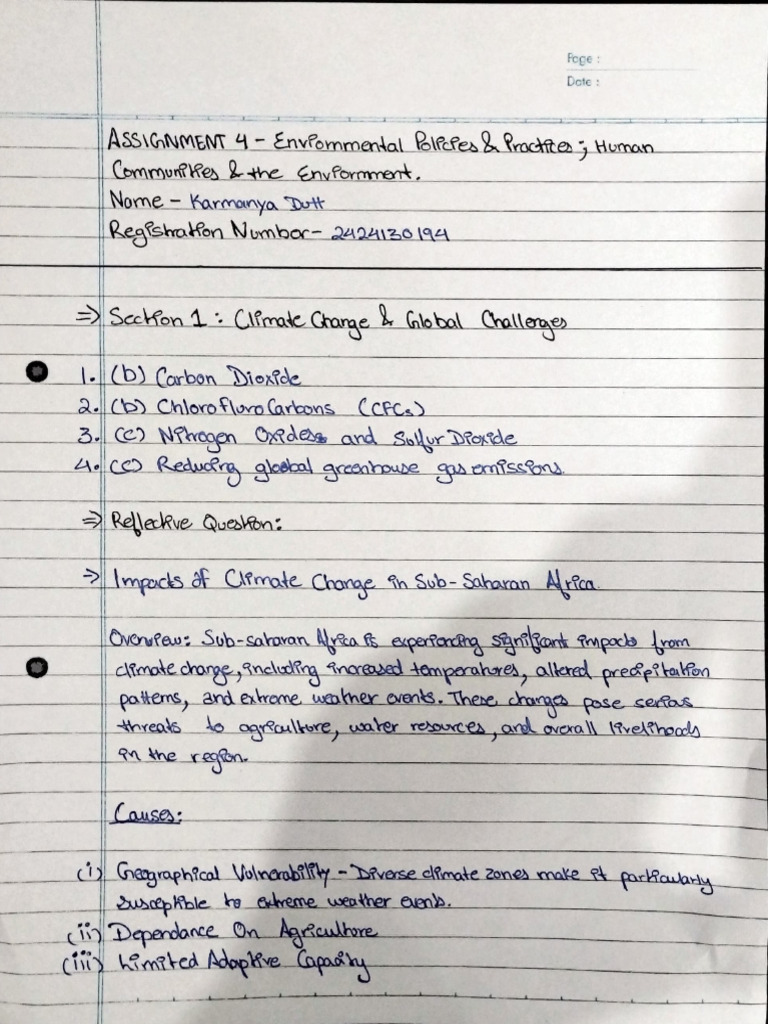 Page :
Date :
ASSIGNMENT 4 - Enviornmental Policies & Practices ; Human
Communities & the Enviornment.
Name - Karmanya Dutt
Registration Number - 2424130194
⇒ Section 1 : Climate Change & Global Challenges
1. (b) Carbon Dioxide
2. (b) Chlorofluro Carbons (CFCs)
3. (c) Nitrogen Oxides and Sulfur Dioxide
4. (c) Reducing global greenhouse gas emissions.
⇒ Reflective Question:
→ Impacts of Climate Change in Sub-Saharan Africa.
Overview: Sub-saharan Africa is experiencing significant impacts from
climate change, including increased temperatures, altered precipitation
patterns, and extreme weather events. These changes pose serious
threats to agriculture, water resources, and overall livelihoods
in the region.
Causes:
(i) Geographical Vulnerability - Diverse climate zones make it particularly
susceptible to extreme weather events.
(ii) Dependance On Agriculture
(iii) Limited Adaptive Capacity